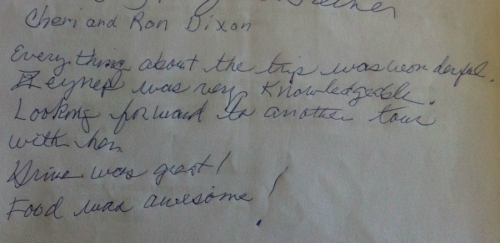 Cheri and Ron Dixon
Everything about the trip was wonderful.
Zeynep was very knowledgeable.
Looking forward to another tour
with her
Driver was great!
Food was awesome!